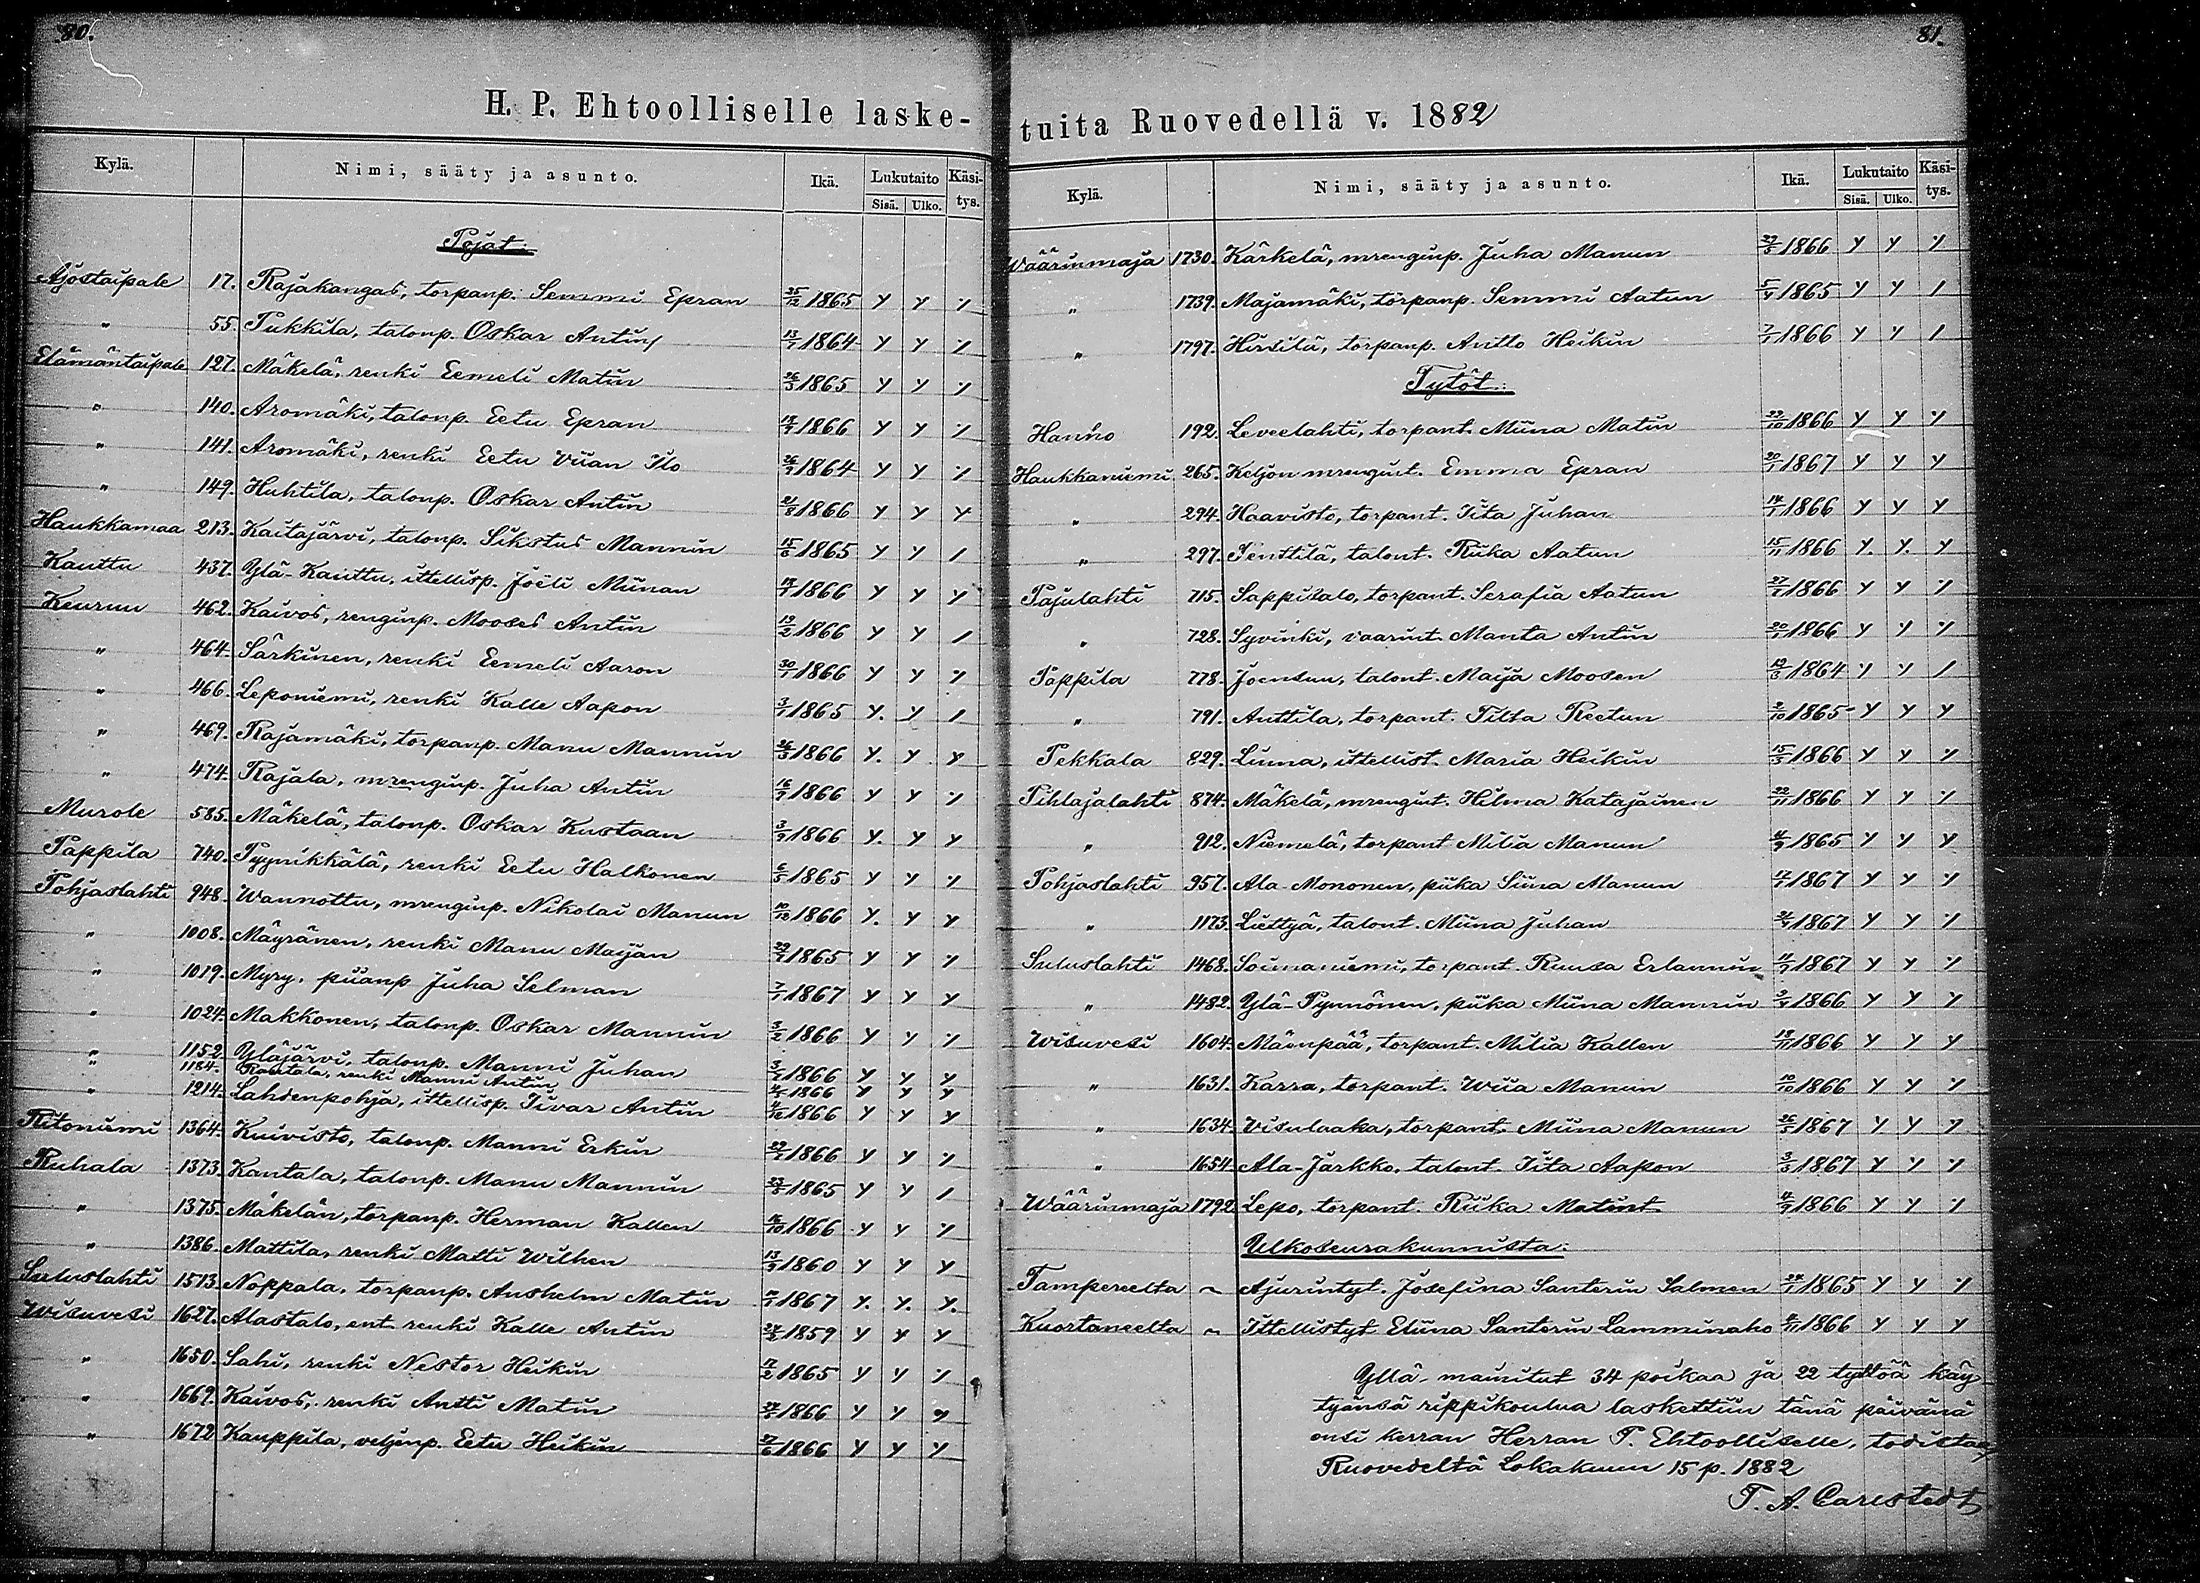 80.
H. P. Ehtoolliselle laske-
Kylä. Nimi, sääty ja asunto. Ikä. Lukutaito Käsi-
Sisä. Ulko. tys.
Pojat:
Ajostaipale 17. Rajakangas, torpanp. Semmi Epran 25/12 1865 y y
" 55. Pukkila, talonp. Oskar Antin 13/7 1864 y y
Elämäntaipale 127. Mäkelä, renki Eemeli Matin 26/3 1865 y y
" 140. Aromäki, talonp. Eetu Epran 1866 y y
" 141. Aromäki, renki Eetu Viian Ilo 1864 y y
" 149. Huhtila, talonp. Oskar Antin 21/8 1866 y y y
Haukkamaa 213. Kaitajärvi, talonp. Sikstus Mannin 15/6 1865 y y /
Kauttu 437. Ylä-Kauttu, ittellisp. Joeli Miinan 1866 y y y
Keuruu 462. Kaivos, renginp. Mooses Antin 19/2 1866 y y /
" 464. Särkinen, renki Eemeli Aaron 30/1 1866 y y
" 466. Leponiemi, renki Kalle Aapon 3/1 1865 y. y /
" 469. Rajamäki, torpanp. Manu Mannin 26/3 1866 y. y y
" 474. Rajala, mrenginp. Juha Antin 16/9 1866 y y
Murole 585. Mäkelä, talonp. Oskar Kustaan 3/9 1866 y. y y
Pappila 740. Pyynikkälä, renki Eetu Halkonen 6/5 1865 y y
Pohjaslahti 948. Wannottu, mrenginp. Nikolai Manun 10/12 1866 y. y y
" 1008. Mäyränen, renki Manu Maijan 1865 y y
" 1019. Myry, piianp Juha Selman 7/1 1867 y y y
" 1024. Makkonen, talonp. Oskar Mannin 3/2 1866 y y
" 1152. Yläjärvi, talonp. Manni Juhan 1866 y y y
" 1184. Rantala, renki Manni Antin 1866 y y y
" 1214. Lahdenpohja, ittellisp. Iivar Antin 1866 y y y
Ritoniemi 1364. Kuivisto, talonp. Manni Erkin 1866 y y
Ruhala 1373. Kantala, talonp. Manu Mannin 1865 y y /
" 1375. Mäkelän, torpanp. Herman Kallen 1866 y y
" 1386. Mattila, renki Matti Wilhen 13/9 1860 y y y
Suluslahti 1513. Noppala, torpanp. Anshelm Matin 1867 y. y. y.
Wisuvesi 1627. Alastalo, ent. renki Kalle Antin 1859 y y y
" 1650. Lahi, renki Nestor Heikin 17/2 1865 y y
" 1669. Kaivos, renki Antti Matin 1866 y y y
" 1672 Kauppila, veljenp. Eetu Heikin 27/6 1866 y y y
81.
tuita Ruovedellä v. 1882
Kylä. Nimi, sääty ja asunto. Ikä. Lukutaito Käsi-
Sisä. Ulko. tys.
Väärinmaja 1730. Kärkelä, mrenginp. Juha Manun 1866 y y
" 1739. Majamäki, torpanp. Semmi Aatun 1865 y y /
" 1797. Hirsilä, torpanp. Antto Heikin 7/1 1866 y y /
Tytöt:
Hanho 192. Leveelahti, torpant. Miina Matin 23/10 1866 y y
Haukkaniemi 265. Keljon mrengint. Emma Epran 20/1 1867 y y y
" 294. Haavisto, torpant. Iita Juhan 14/1 1866 y y y
" 297. Penttilä, talont. Riika Aatun 15/11 1866 y. y. y
Pajulahti 715. Sappitalo, torpant. Serafia Aatun 1866 y y
" 728. Syvinki, vaarint. Manta Antin 20/1 1866 y y
Pappila 778. Joensuu, talont. Maija Moosen 1864 y y /
" 791. Anttila, torpant. Tilta Reetun 2/10 1865 y y y
Pekkala 829. Linna, ittellist. Maria Heikin 15/5 1866 y y
Pihlajalahti 874. Mäkelä, mrengint. Hilma Katajainen 22/11 1866 y y
" 912. Niemelä, torpant Milia Manun 1865 y y y
Pohjaslahti 957. Ala-Mononen, piika Siina Manun 1867 y y
" 1173. Liettyä, talont. Miina Juhan 1867 y y
Suluslahti 1468. Soimaniemi, torpant. Ruusa Erlannin 1867 y y
" 1482. Ylä-Pynnönen, piika Miina Mannin 1866 y y
Wisuvesi 1604. Mäenpää, torpant. Milia Kallen 1866 y y
" 1631. Karra, torpant. Wiia Manun 10/10 1866 y y
" 1634. Visulaaka, torpant. Miina Manun 1867 y y
" 1654. Ala-Järkko, talont. Iita Aapon 1867 y y
Wäärinmaja 1792. Lepo, torpant. Riika Matint 1866 y y
Ulkoseurakunnista:
Tampereelta Ajurintyt. Josefina Santerin Salmen 1865 y y
Kuortaneelta Ittellistyt Eliina Santerin Lamminaho 1866 y y y
Yllä mainitut 34 poikaa ja 22 tyttöä käy-
tyänsä rippikoulua laskettiin tänä päivänä
ensi kerran Herran P. Ehtoolliselle, todistaa,
Ruovedeltä Lokakuun 15 p. 1882
T. A. Carlstedt